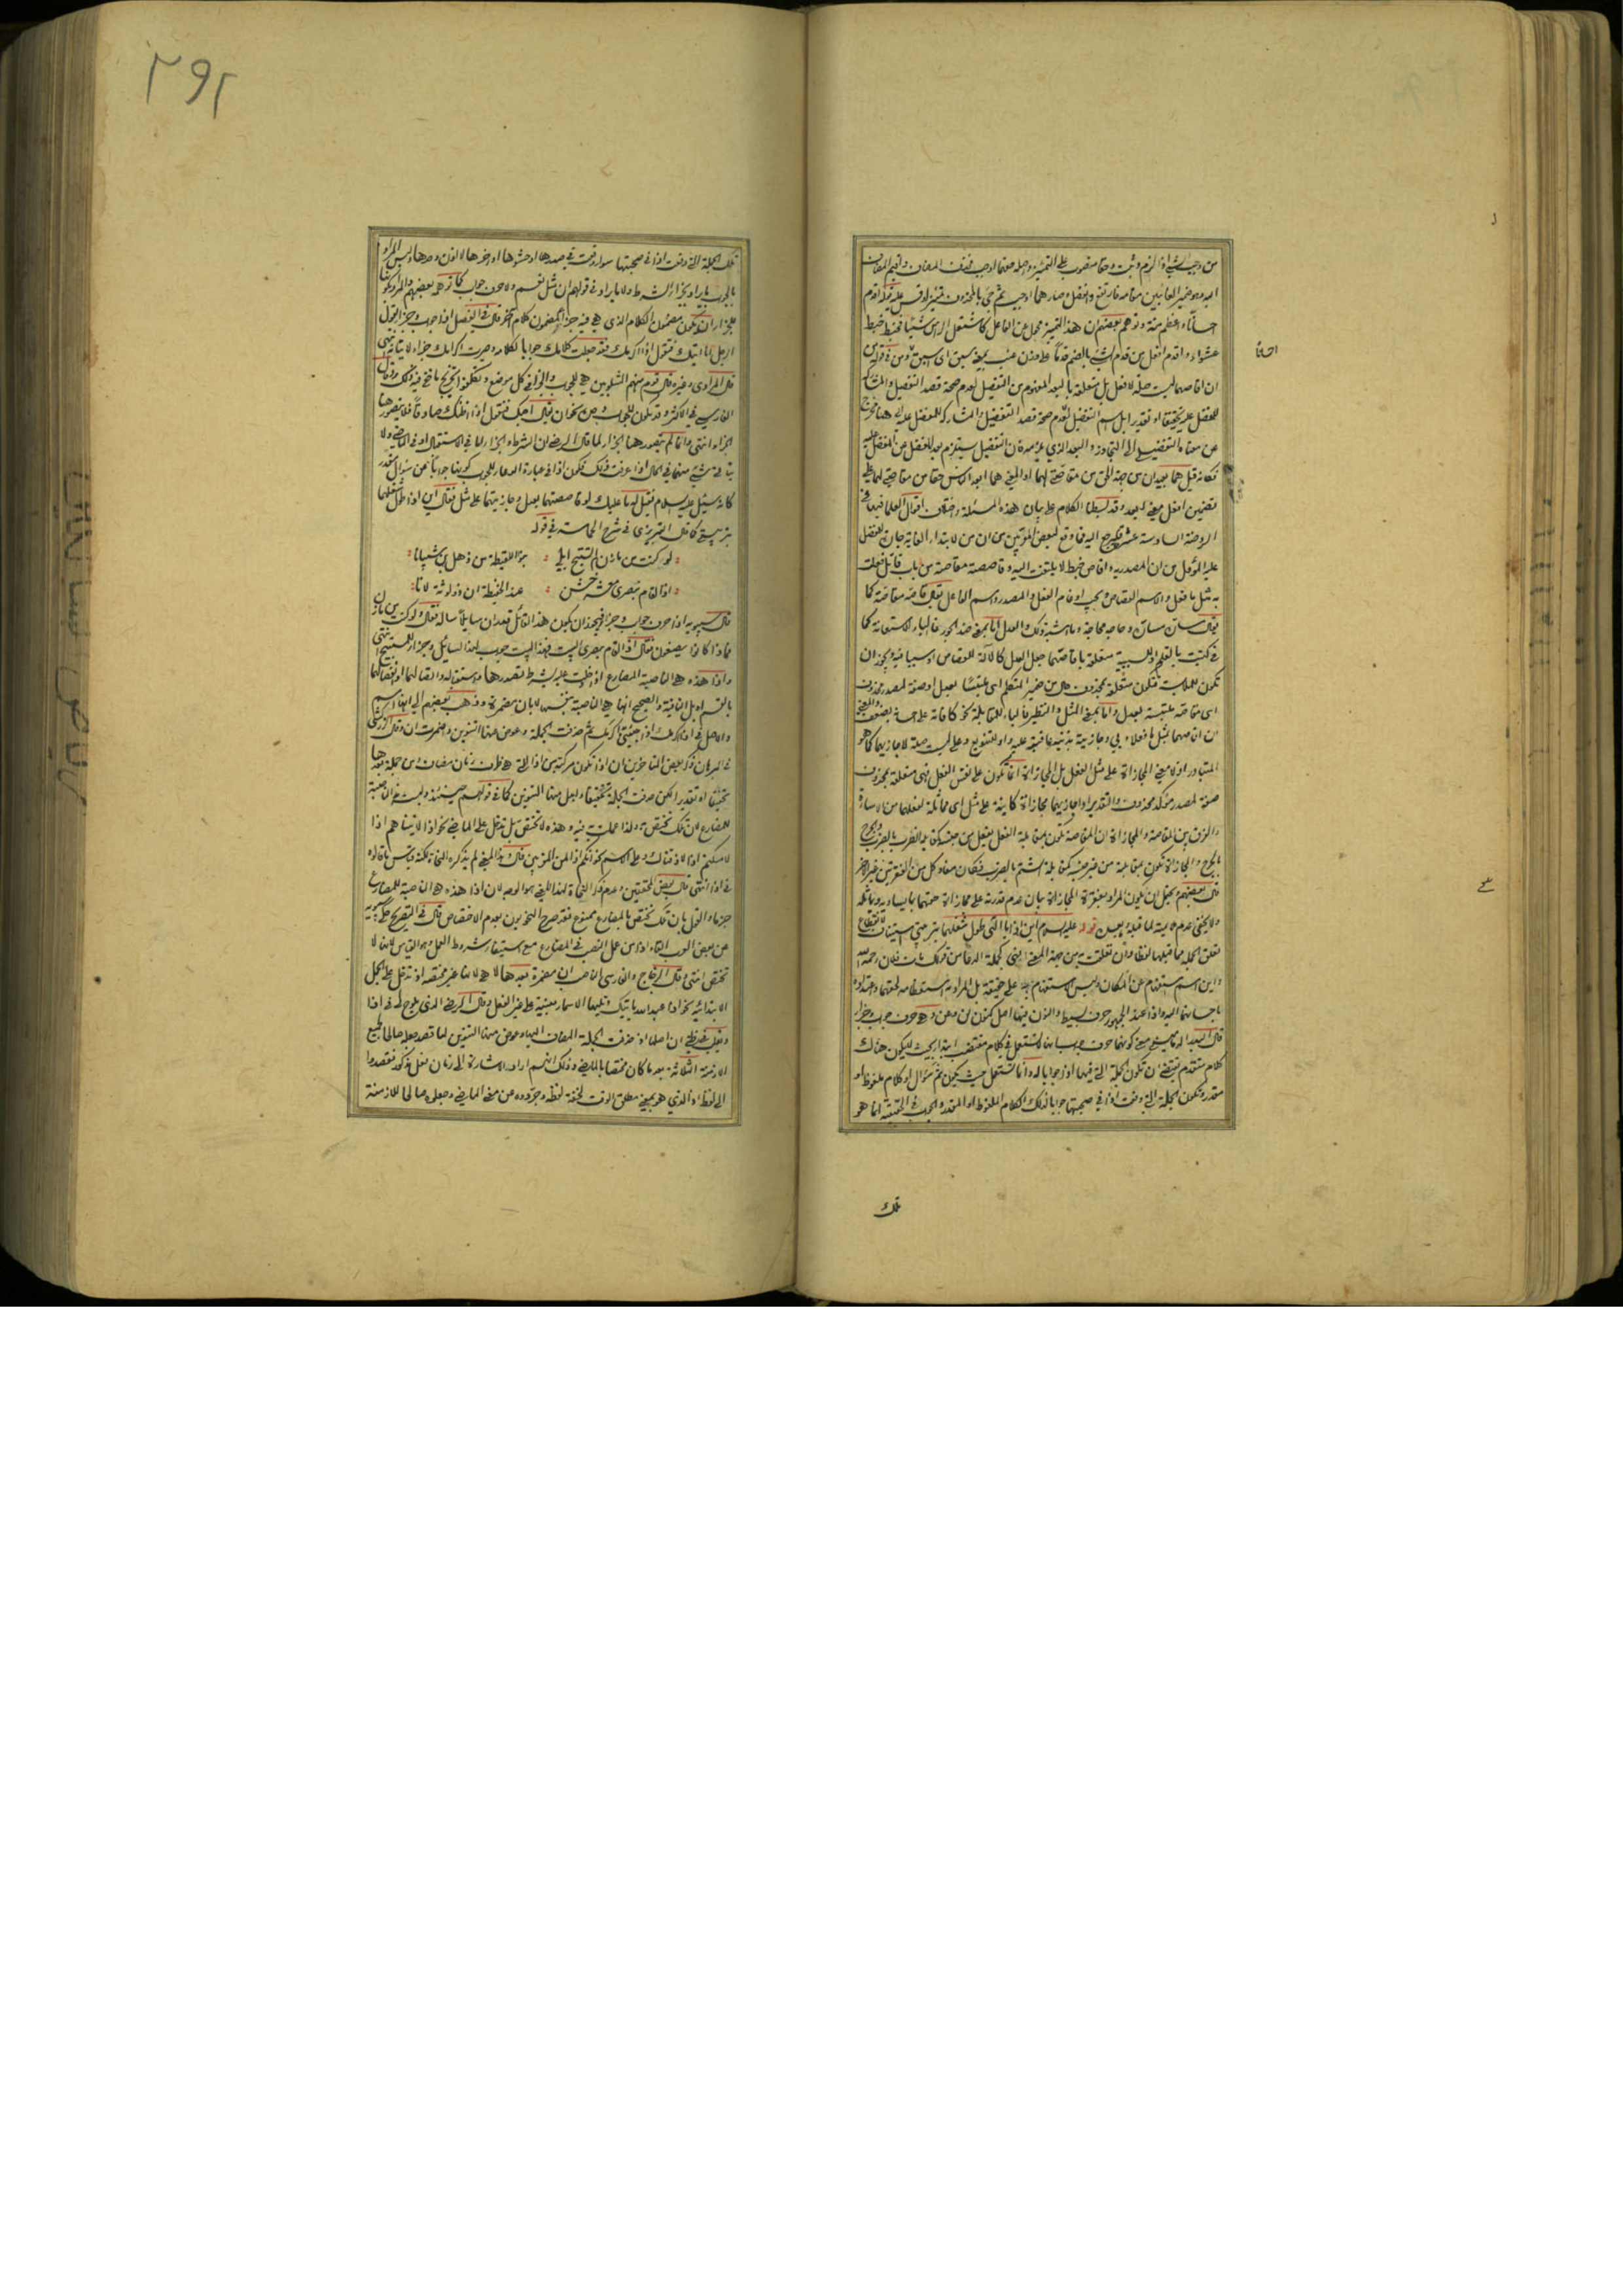 من وجب الشيء اذا لزم وثبت وحقا منصوب على التميز واصله حقهما اوجب فحذف المضاف واقيم المضاف
اليه وهو ضمير الغائبين مقامه فارتفع وانفصل وصار هما اوجب ثم جيء بالمحذوف تميزا وقس عليه قوله اقدم
احسانا واعظم منة وتوهم بعضهم ان هذا التميز محول عن الفاعل كاشتعل الراس شيبا فخبط خبط
عشواء واقدم افعل من قدم الشيء بالضم قدما على وزن عنب بمعنى سبق اى اسبق ومن فى قوله من
ان اقاصهما ليست صلة لافعل بل متعلقة بالبعد المفهوم من التفضيل لعدم صحة قصد التفضيل والمشاركة
للمفضل عليه تحقيقا او تقديرا بل اسم التفضيل لعدم صحة قصد التفضيل والمشاركة للمفضل عليه هنا خرج
عن معناه التفضيلى الى التجاوز والبعد الذى يلزمه فان التفضيل يستلزم بعد المفضل عن المفضل عليه
فكانه قيل هما بعيدان من جهة الحق من مقاصتى لهما او المعنى هما ابعد الناس حقا من مقاصتى لهما على
تضمين افعل معنى ابعد وقد بسطنا الكلام على بيان هذه المسئلة واختلاف اقوال العلماء فيها فى
الروضة السادسة عشر فليرجع اليه فما وقع لبعض المترجمين من ان من لابتداء الغاية جان للمفضل
عليه المؤول من ان المصدرية واقاص خبط لا يلتفت اليه وقاصصته مقاصة من باب قاتل فعلت
به مثل ما فعل والاسم القصاص ويجب ادغام الفعل والمصدر واسم الفاعل يقال قاصه مقاصة كما
يقال ساره مسارة وحاجه محاجة وما اشبه ذلك والعدل اما بمعنى ضد الجور فالباء للاستعانة كما
فى كتبت بالقلم او للسببية متعلقة باقاصهما جعل العدل كالآلة للقصاص او سببا فيه ويجوز ان
تكون للملابسة فتكون متعلقة بمحذوف حال من ضمير المتكلم اى ملتبسا بعدل او صفة لمصدر محذوف
اى مقاصة ملتبسة بعدل واما بمعنى المثل والنظير فالباء للمقابلة نحو كافاته على احسانه بضعف والمعنى
المتبادر اذ لا معنى للمجازاة على مثل الفعل بل المجازاة انما تكون على نفس الفعل فهى متعلقة بمحذوف
صفة لمصدر مؤكد محذوف والتقدير او اجازيهما مجازاة كاينة على مثل اى مماثلة لفعلهما من الاساءة
والفرق بين المقاصة والمجازاة ان المقاصة تكون بمقابلة الفعل بفعل من جنسه كمقابلة الضرب بالضرب والجرح
بالجرح والمجازاة تكون بمقابلته من غير جنسه كمقابلة الشتم بالضرب فكان مفاد كل من الفقرتين غير الاخر
قال بعضهم ويحتمل ان يكون المراد بفقرة المجازاة بيان عدم قدرته على مجازاة حقهما بما يساويه ويماثله
ولا يخفى عدم ملايمته لما قبله وما بعده قوله عليه السلام اين اذا يا الهى طول شغلهما بتربيتى استيناف لانقطاع
تعلق الجملة بما قبلها لفظا وان تعلقت به من جهة المعنى
واين اسم استفهام عن المكان وليس الاستفهام به على حقيقته بل المراد به استعظامه لحقهما واعتداده
قال الدمامينى معنى كونها حرف جواب انها لا تستعمل فى كلام مقتضب ابتداء بحيث لا يكون هناك
كلام متقدم يقتضى ان تكون الجملة التى فيها اذا جوابا له وانما تستعمل حيث يكون ثم سؤال او كلام ملفوظ او
مقدر وتكون الجملة التى وقعت اذا فى صحبتها جوابا لذلك الكلام الملفوظ او المقدر والجواب فى الحقيقة انما هو
احسانا
تلك
٢٩٢
تلك الجملة التى وقعت اذا فى صحبتها سواء وقعت فى صدرها او حشوها او اخرها لا اذن وحدها وليس المراد
بالجواب ما يراد بجزاء الشرط ولا ما يراد فى قولهم ان مثل نعم ولا حرف جواب كما توهمه بعضهم والمراد بكونها
للجزاء ان يكون مضمون الكلام الذى هى فيه جزاء لمضمون كلام اخر قال فى المفصل اذا جواب وجزاء يقول
الرجل انا اتيك فتقول اذا اكرمك فقد جعلت كلامك جوابا لكلامه وصيرت اكرامك جزاء لاتيانه انتهى
قال المرادى وغيره قال قوم منهم الشلوبين هى للجواب والجزاء فى كل موضع وتكلفوا تخريج ما خفى فيه ذلك وقال
الفارسى فى الاكثر وقد تكون للجواب وحده نحو ان يقال احبك فتقول اذا اظنك صادقا فلا يتصور هنا
الجزاء انتهى وانما لم يتصور هنا الجزاء لما قال الرضى ان الشرط والجزاء اما فى الاستقبال او فى الماضى ولا
يتاتى شيء منهما فى الحال اذا عرفت ذلك فتكون اذا فى عبارة الدعاء للجواب كونها جوابا عن سؤال مقدر
كانه سئل عليه السلام فقيل له ما عليك لو قاصصتهما بعدل وجازيتهما على مثل فقال اين اذا طول شغلهما
بتربيتى كما قال التبريزى فى شرح الحماسة فى قوله
لو كنت من مازن لم تستبح ابلى بنو اللقيطة من ذهل بن شيبانا
اذا لقام بنصرى معشر خشن عند الحفيظة ان ذو لوثة لانا
قال سيبويه اذا حرف جواب وجزاء فيجوز ان يكون هذا القائل قدر ان سايلا ساله فقال ولو كنت من مازن
فماذا كانوا يصنعون فقال اذا لقام بنصرى البيت فهذا البيت جواب لهذا السائل وجزاء للمستبيح انتهى
واذا هذه هى الناصبة للمضارع اذا دخلت عليه بشرط تصدرها واستقباله واتصالها او انفصالها
بالقسم او بلا النافية والصحيح انها هى الناصبة بنفسها لا بان مضمرة وذهب بعضهم الى انها اسم
والاصل فى اذا اكرمك اذا جئتنى اكرمك ثم حذفت الجملة وعوض عنها التنوين واضمرت ان وقال الزركشى
فى البرهان ذكر بعض المتاخرين ان اذا تكون مركبة من اذا التى هى ظرف زمان مضاف الى جملة بعدها
تحقيقا او تقديرا لكن حذفت الجملة تخفيفا وابدل منها التنوين كما فى قولهم حينئذ وليست هى الناصبة
للمضارع لان تلك تختص به ولذا عملت فيه وهذه لا تختص بل تدخل على الماضى نحو اذا لاتيناهم اذا
لامسكتم اذا لاذقناك وعلى الاسم نحو انكم اذا لمن المقربين قال وهذا المعنى لم يذكره النحاة لكنه قياس ما قالوه
فى اذ انتهى قال بعض المحققين وعدم ذكر النحاة لهذا المعنى هو الوجه لان اذا هذه هى الناصبة للمضارع
جزما والقول بان تلك تختص بالمضارع ممنوع فقد صرح النحويون بعدم الاختصاص قال فى التصريح حكى سيبويه
عن بعض العرب الغاء اذا من عمل النصب فى المضارع مع استيفاء شروط العمل وهو القياس لانها لا
تختص انتهى وقال الزجاج والفارسى الناصب ان مضمرة بعدها لا هى لانها غير مختصة اذ تدخل على الجمل
الابتدائية نحو اذا عبد الله ياتيك وتليها الاسماء مبنية على غير الفعل وقال الرضى الذى يلوح لى فى اذا
ويغلب فى ظنى ان اصلها اذ حذفت الجملة المضاف اليها وعوض منها التنوين لما قصد جعله صالحا لجميع
الازمنة الثلاثة بعد ما كان مختصا بالماضى وذلك انهم ارادوا الاشارة الى زمان فعل مذكور فقصدوا
الى لفظ اذ الذى هو بمعنى مطلق الوقت لخفة لفظه وجردوه عن معنى الماضى وجعلوه صالحا للازمنة